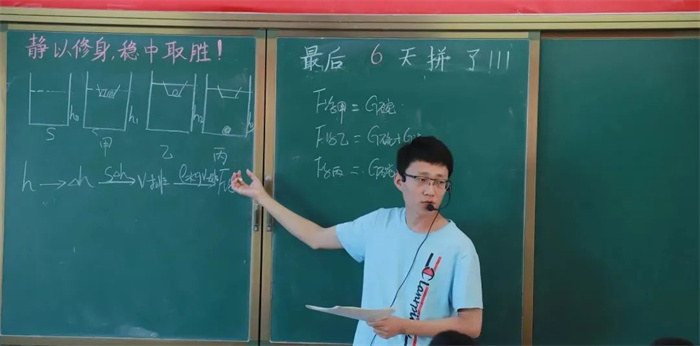 静以修身,稳中取胜!
h₀ h₁ h₂
S 甲 乙 丙
h → Δh —SΔh→ V排 —ρ水gV排→ F浮
最后 6 天拼了!!!
F浮甲 = G碗
F浮乙 = G碗+G
F浮丙 = G碗
Champion